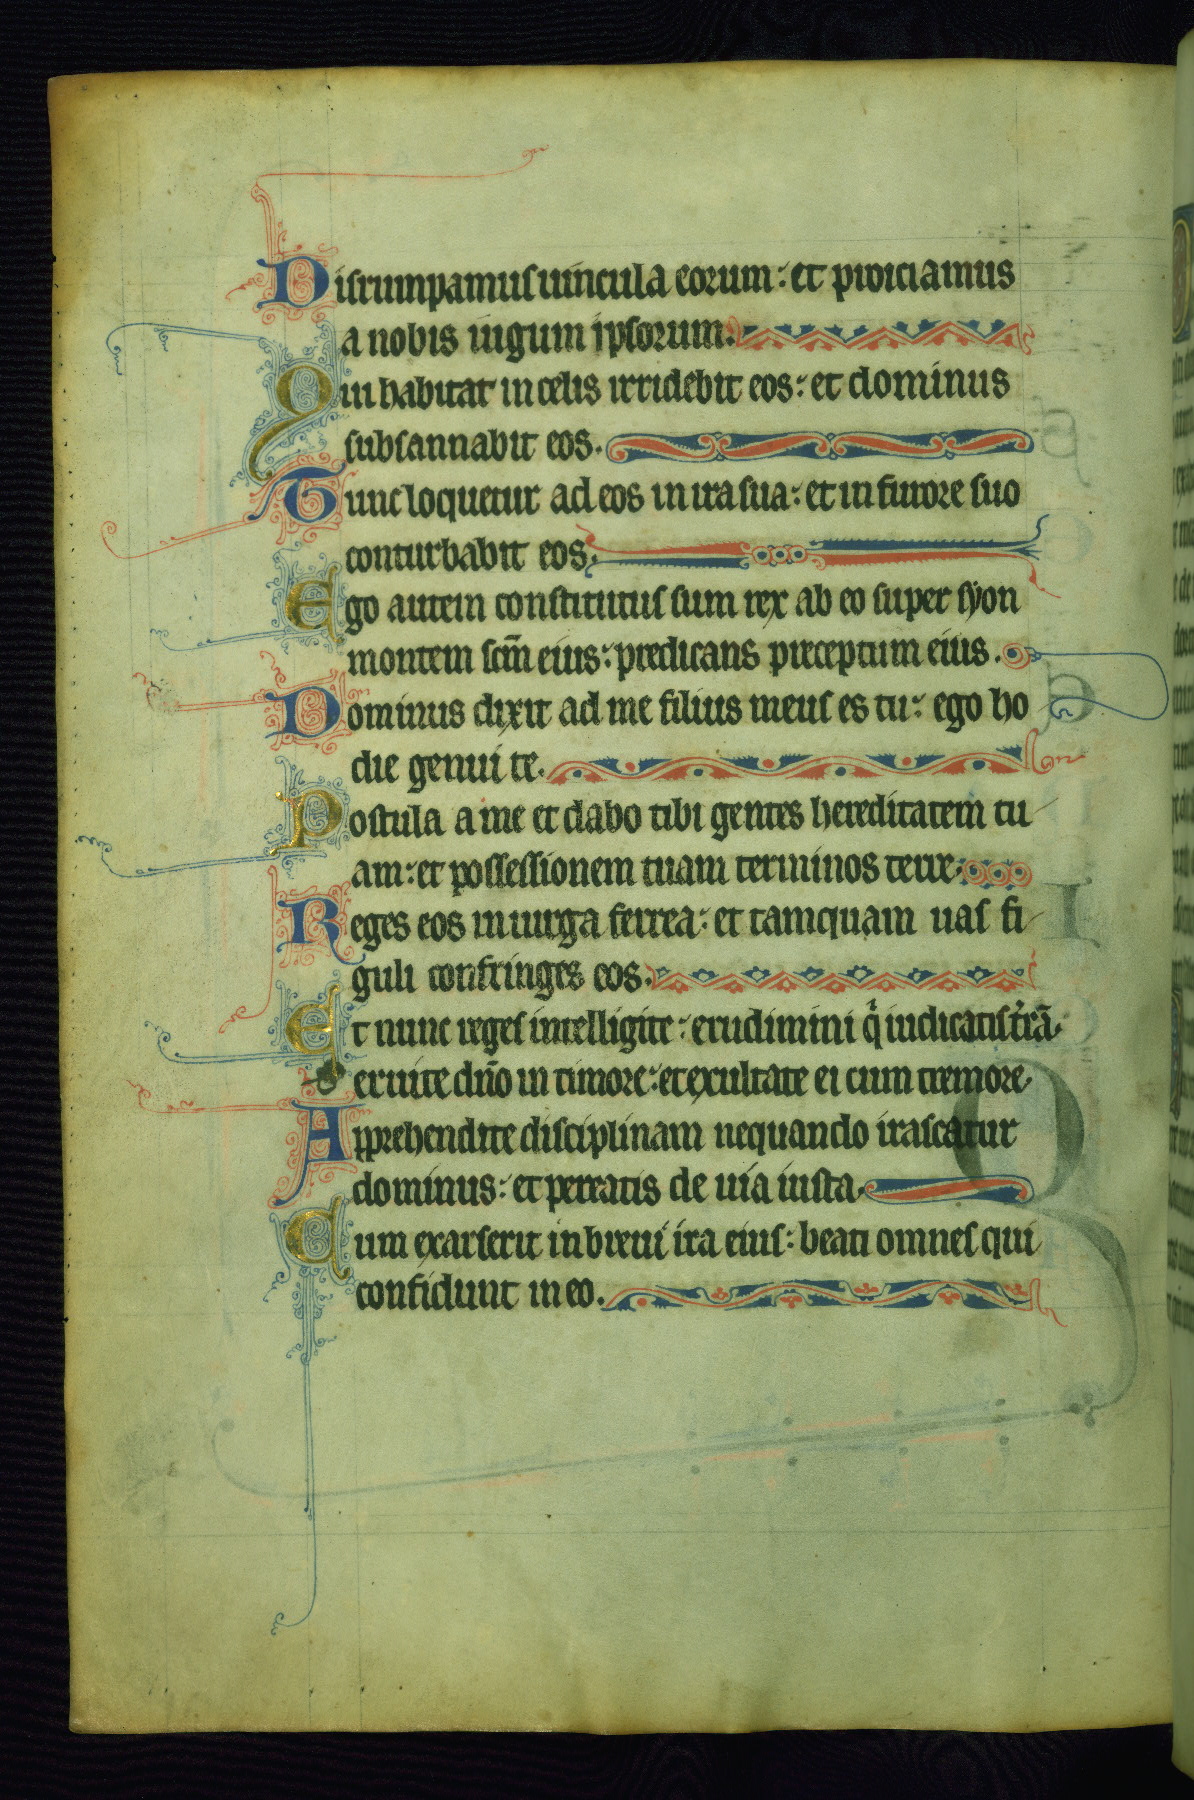 Disrumpamus uincula eorum: et proiciamus
a nobis iugum ipsorum.
Qui habitat in celis irridebit eos: et dominus
subsannabit eos.
Tunc loquetur ad eos in ira sua: et in furore suo
conturbabit eos.
Ego autem constitutus sum rex ab eo super syon
montem scm̅ eius: predicans preceptum eius.
Dominus dixit ad me filius meus es tu: ego ho
die genui te.
Postula a me et dabo tibi gentes hereditatem tu
am: et possessionem tuam terminos terre.
Reges eos in uirga ferrea: et tamquam uas fi
guli confringes eos.
Et nunc reges intelligite: erudimini qͥ iudicatis t̾rā.
Seruite dn̅o in timore: et exultate ei cum tremore.
Apprehendite disciplinam nequando irascatur
dominus: et pereatis de uia iusta.
Cum exarserit in breui ira eius: beati omnes qui
confidunt in eo.